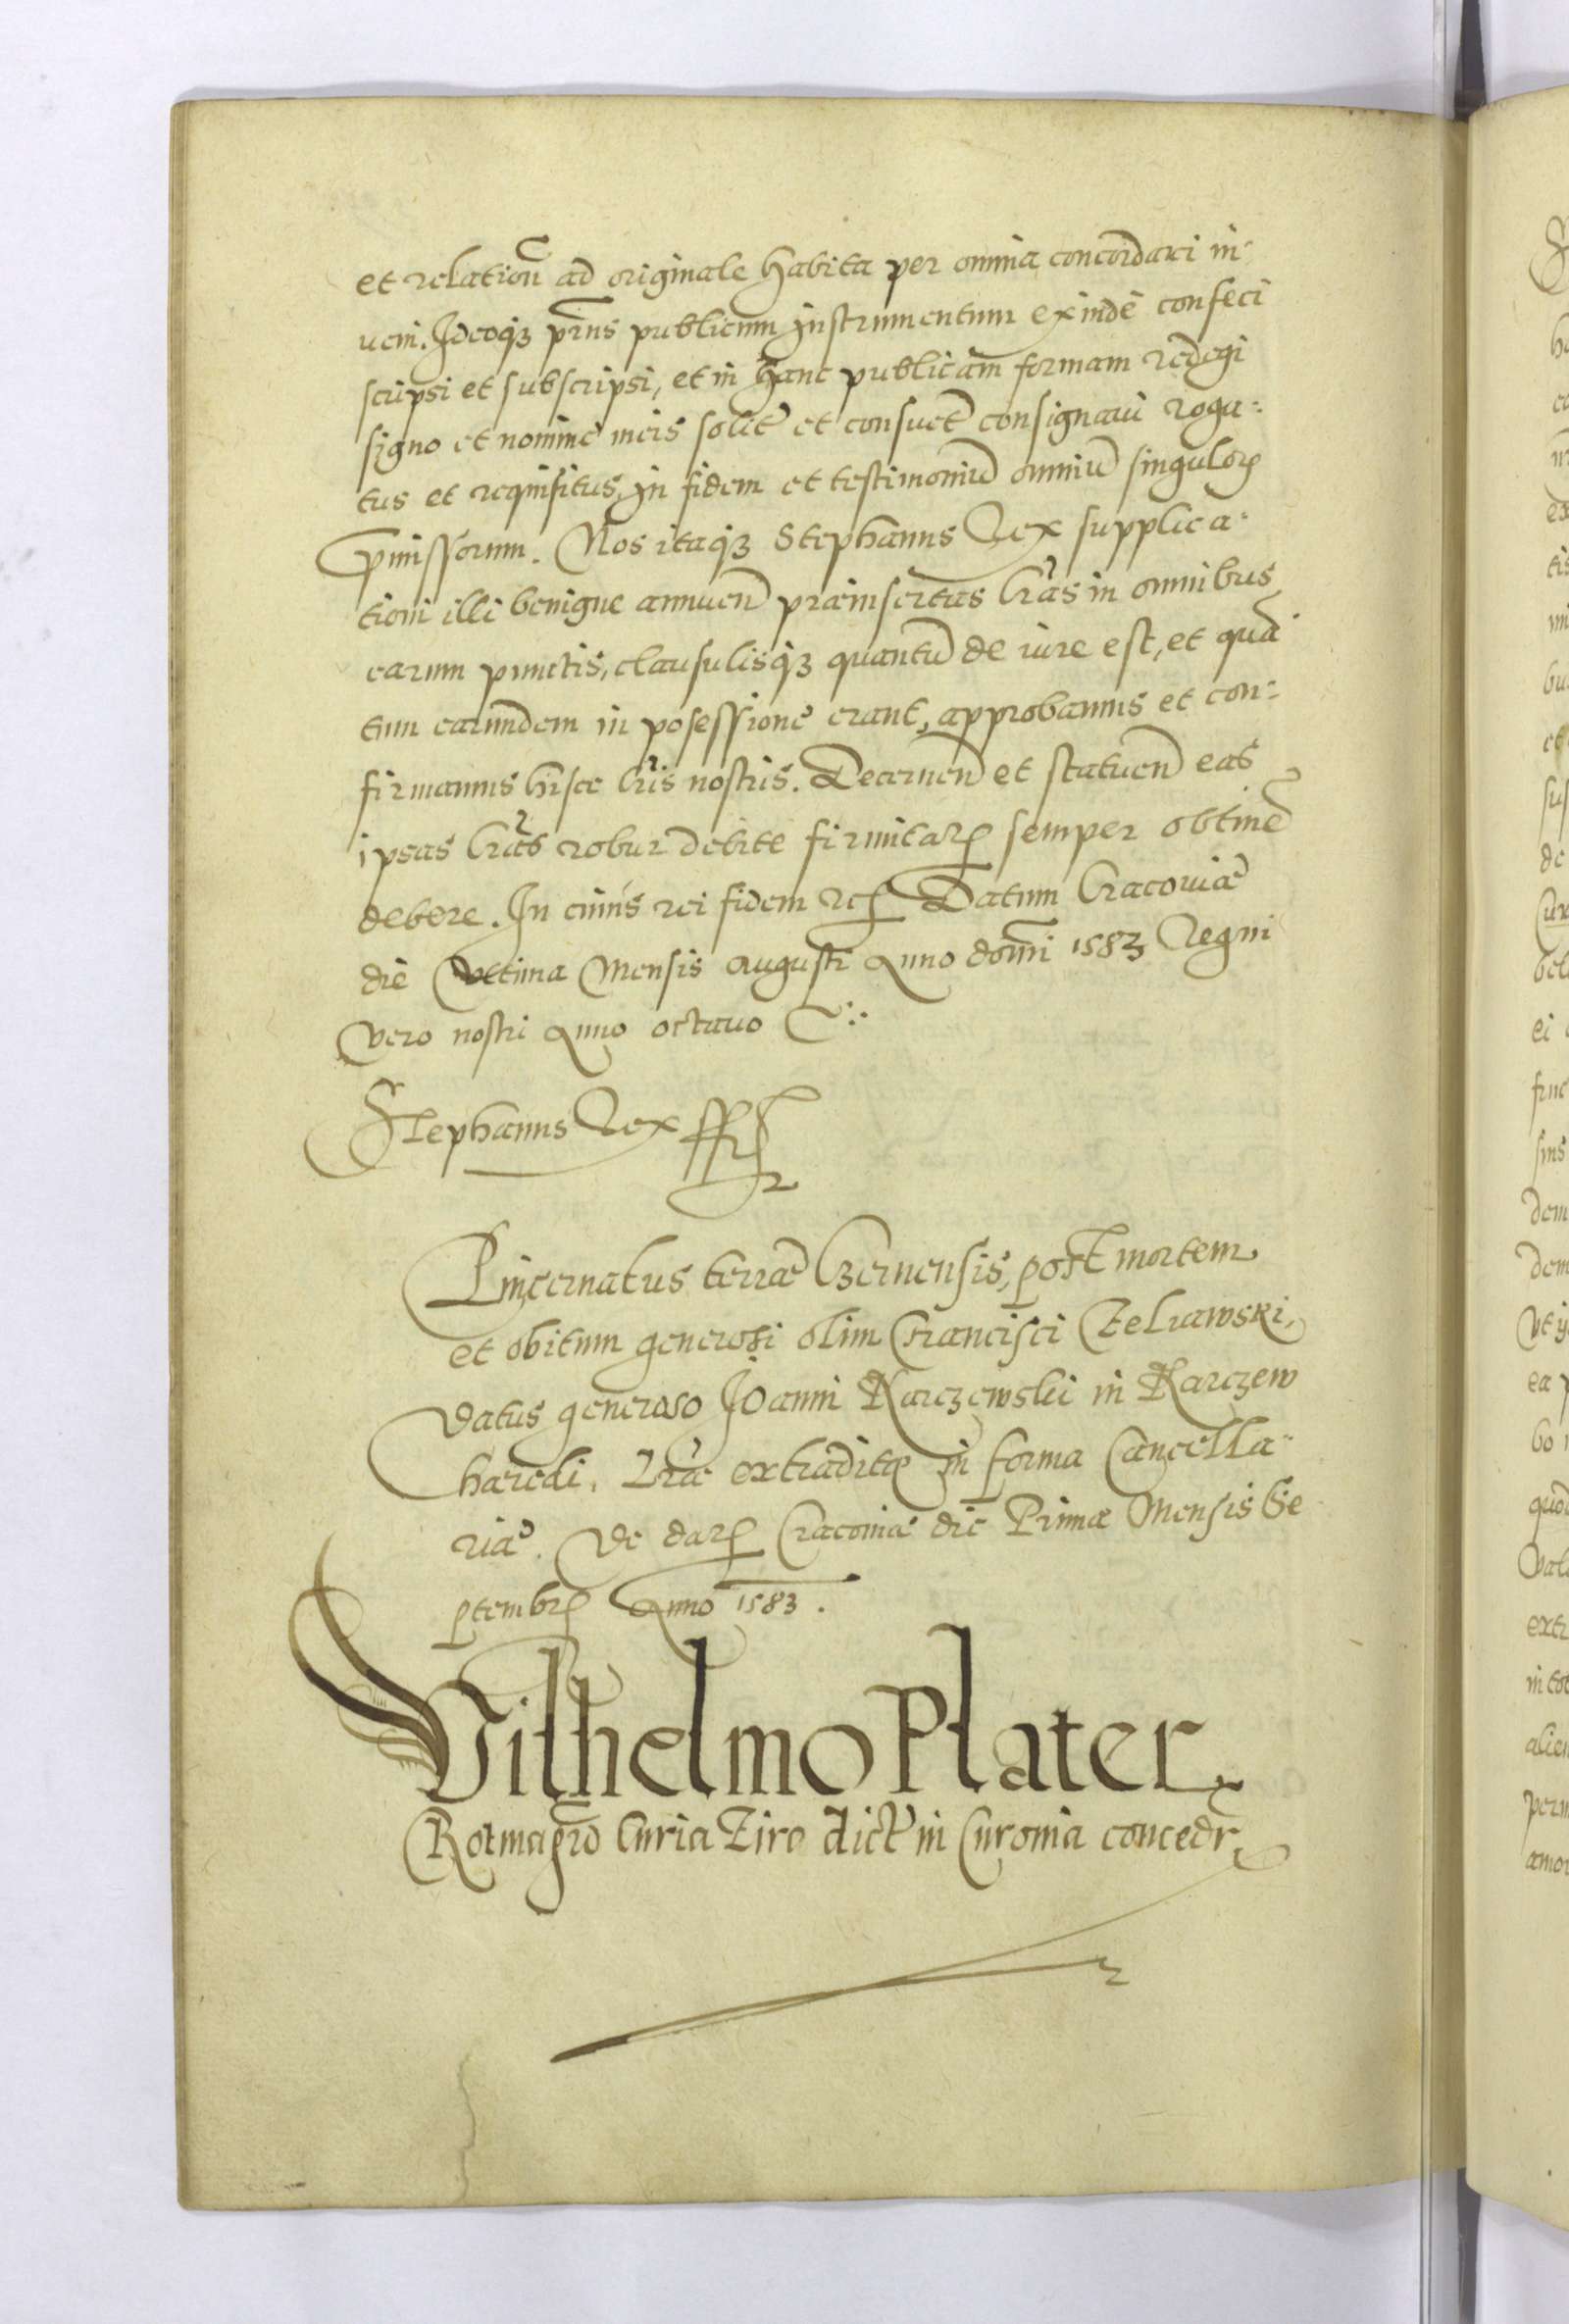 et relation ad originale habita per omnia concordari in-
ueni. Ideoq3 pñs publicum Instrumentum exinde confeci
scripsi et subscripsi, et in hanc publicam formam redegi
signo et nomine meis solit et consuet consignaui roga-
tus et requisitus, in fidem et testimoniũ omniũ singulor
pmissorum. Nos itaq3 Stephanus Rex supplica-
tioni illi benigne annuen præinsertas lras in omnibus
earum punctis, clausulisq3 quantũ de iure est, et quã
tum earundem in posessione erant, approbamus et con-
firmamus hisce lris nostris. Decernen et statuen eas
ipsas lras robur debite firmitat semper obtine
debere. In cuius rei fidem etc Datum Cracouiæ
die Vltima Mensis Augusti Anno domi 1583 Regni
vero nostri Anno octauo
Stephanus Rex sst
Pincernatus terræ Czernensis, post mortem
et obitum generosi olim Francisci Zelrawski,
datus generoso Joanni Karczewski in Karczew
hæredi. Lræ extraditæ in forma Cancella-
riæ. De dat Cracouiæ die Prima Mensis Se
ptembr Anno 1583.
Vilhelmo Plater
Rotmagro Curia Ziro dict in Curonia concedr